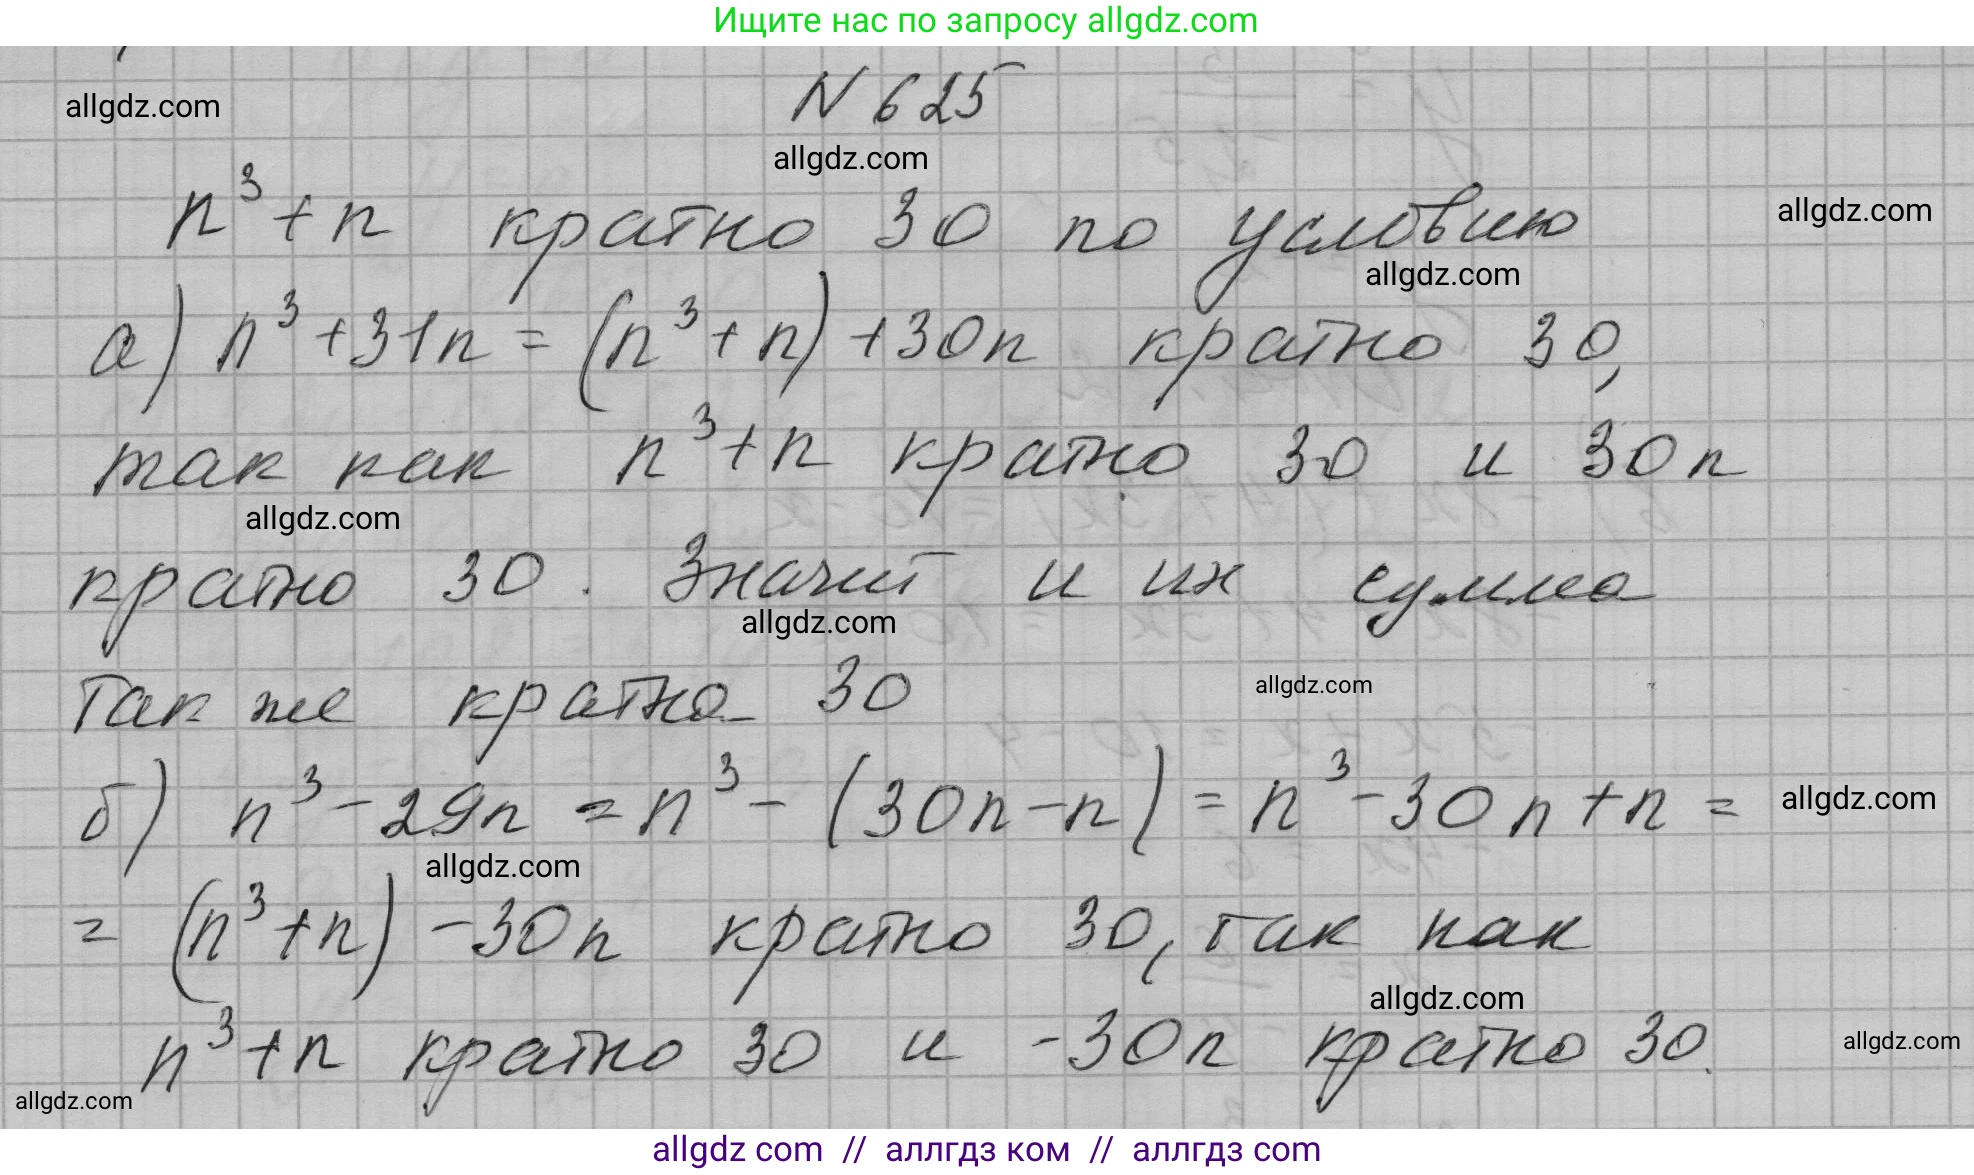 Ищите нас по запросу allgdz.com
allgdz.com
N 625
allgdz.com
n³+n кратно 30 по условию
allgdz.com
allgdz.com
а) n³+31n = (n³+n)+30n кратно 30,
так как n³+n кратно 30 и 30n
allgdz.com
кратно 30. Значит и их сумма
allgdz.com
так же кратно 30
allgdz.com
б) n³-29n = n³-(30n-n) = n³-30n+n =
allgdz.com
allgdz.com
= (n³+n) -30n кратно 30, так как
allgdz.com
n³+n кратно 30 и -30n кратно 30.
allgdz.com
allgdz.com
allgdz com // аллгдз ком // аллгдз com